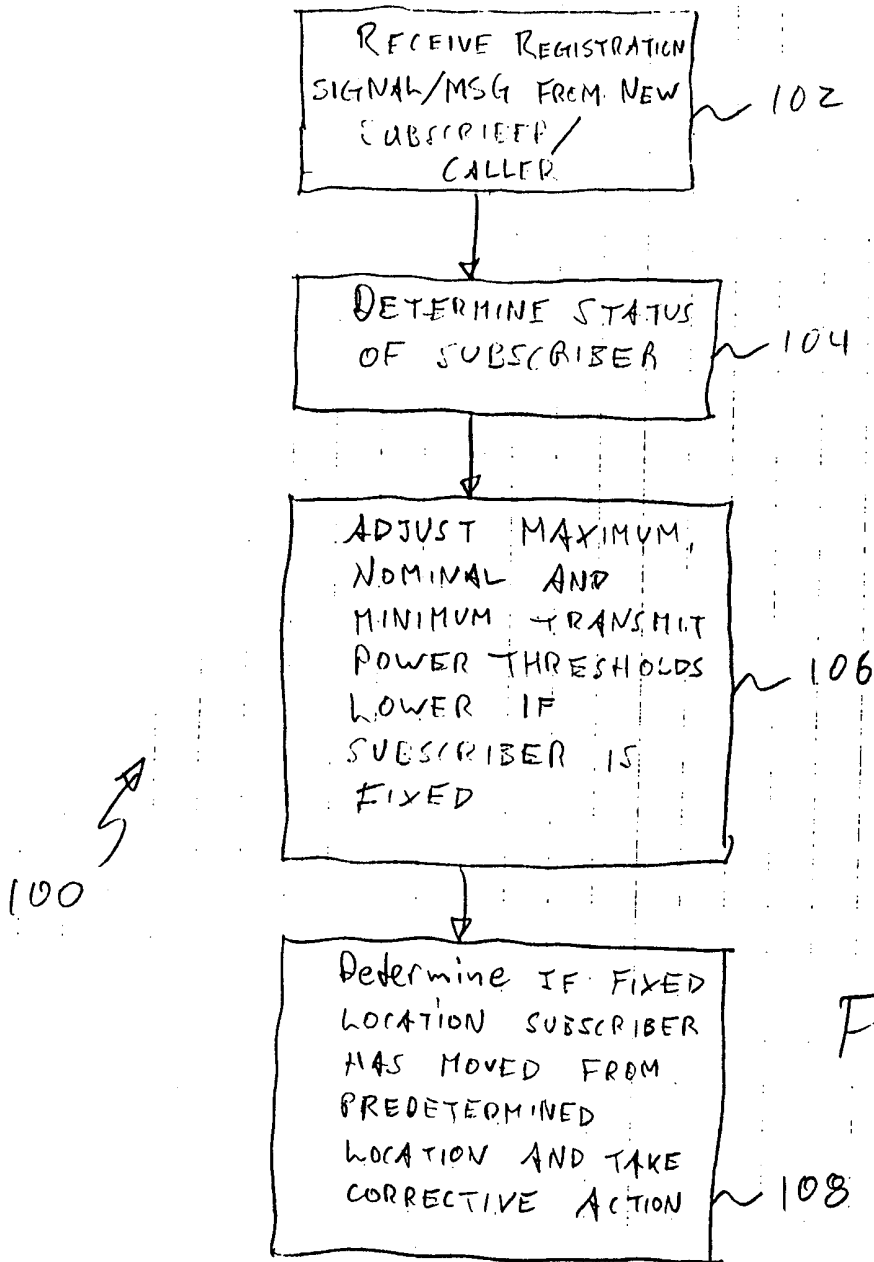 RECEIVE REGISTRATION
SIGNAL/MSG FROM NEW
SUBSCRIBER/
CALLER
102
DETERMINE STATUS
OF SUBSCRIBER
104
ADJUST MAXIMUM,
NOMINAL AND
MINIMUM TRANSMIT
POWER THRESHOLDS
LOWER IF
SUBSCRIBER IS
FIXED
106
100
Determine IF FIXED
LOCATION SUBSCRIBER
HAS MOVED FROM
PREDETERMINED
LOCATION AND TAKE
CORRECTIVE ACTION
108